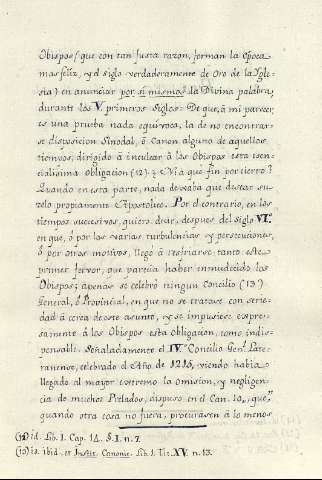 Obispos (que con tan justa razon, forman la Epoca
mas feliz, y el siglo verdaderamente de Oro de la Ygle-
sia) en anunciar por sí mismos la Divina palabra,
durante los V. primeros Siglos: De que, á mi parecer,
es una prueba nada equivoca, la de no encontrar-
se disposicion Sinodal, ó Canon alguno de aquellos
tiempos, dirigido á inculcar á los Obispos esta esen-
cialisima Obligacion (12). ¿Y á que fin por cierto?
Quando en esta parte, nada dexaba que desear su
zelo propiamente Apostolico. Por el contrario, en los
tiempos sucesivos, quiero decir, despues del siglo VI.º
en que, ó por las varias turbulencias y persecuciones,
ó por otros motivos, llegó á resfriarse tanto este
primer fervor, que parecia haber enmudecido los
Obispos; apenas se celebró ningun Concilio (13)
General, ó Provincial, en que no se tratase con serie-
dad á cerca de este asunto, y se impusiese expre-
samente á los Obispos esta Obligacion, como indis-
pensable. Señaladamente el IV. Concilio Gen.l Late-
ranense, celebrado el Año de 1215, viendo habia
llegado al mayor extremo la omision, y negligen-
cia de muchos Prelados, dispuso en el Can. 10, que,
quando otra cosa no fuera, procurasen á lo menos
(12) id. Lib. 1. Cap. 14. §. 1. n. 7.
(13) id. ibid. et Instit. Canonic. Lib. 1. Tit. XV. n. 13.